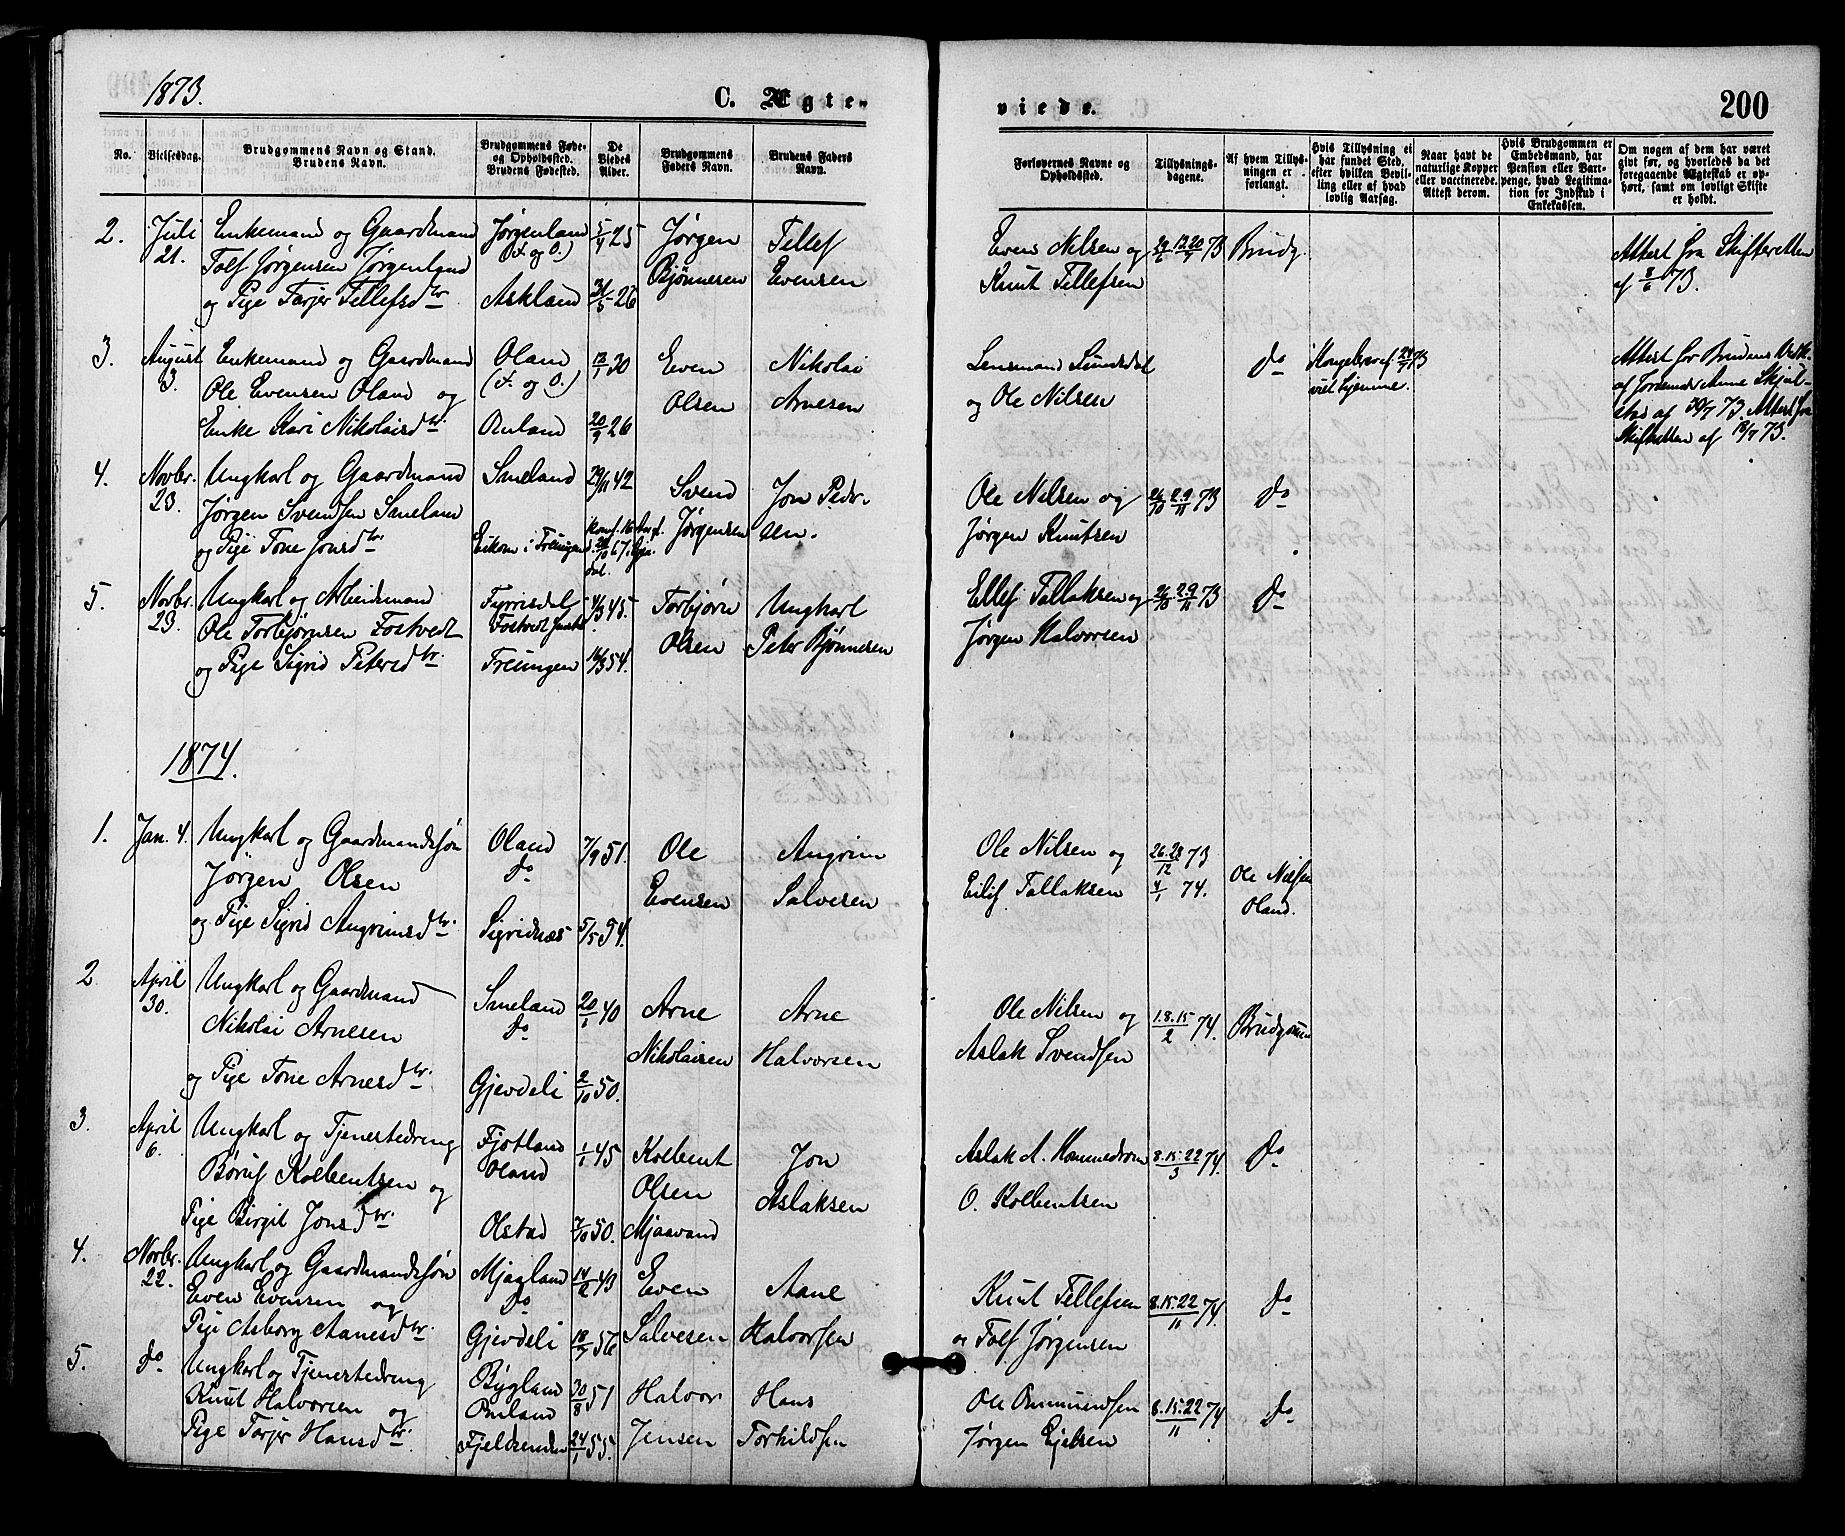 1873.
C. Ægte-
viede.
200
No.
Vielsesdag.
Brudgommens Navn og Stand.
Brudens Navn.
Brudgommens Føde-
og Opholdssted.
Brudens Fødested.
De
Viedes
Alder.
Brudgommens
Faders Navn.
Brudens Faders
Navn.
Forlovernes Navne og
Opholdssted.
Tillysnings-
dagene.
Af hvem Tillys-
ningen er
forlangt.
Hvis Tillysning ei
har fundet Sted,
efter hvilken Bevil-
ling eller af hvad
lovlig Aarsag.
Naar havt de
naturlige Kopper
eller vaccinerede.
Attest derom.
Hvis Brudgommen er
Embedsmand, har
Pension eller Var-
penge, hvad Legitima-
tion for Indskud i
Enkekassen.
Om nogen af dem har været
givt før, og hvorledes da det
foregaaende Ægteskab er op-
hørt, samt om lovligt Skifte
er holdt.
2. Juli 21. Enkemand og Gaardmand
Tolf Jørgensen Jørgenland
og Pige Tarjer Tellefsdtr
Jørgenland
(F. og O.)
Askland
5/4 25
31/5 26
Jørgen
Bjønnesen
Tellef
Evensen
Even Nilsen og
Knut Tellefsen
29/6 13.20/7 73
Brudg.
Attest fra Skifteretten
af 8/6 73.
3. August 3. Enkemand og Gaardmand
Ole Evensen Oland og
Enke Kari Nikolaisdtr
Oland
(F. og O.)
Omland
12/1 30
20/9 26
Even
Olsen
Nikolai
Arnesen
Lensmand Sundsdal
og Ole Nilsen
do
Kongebrev af 24/7 73
viet hjemme.
Attest for Brudens Vedk.
af Jordemor Anne Skjul-
stad af 30/7 73. Attest fra
Skifteretten af 12/7 73.
4. Novbr. 23. Ungkarl og Gaardmand
Jørgen Svendsen Smeland
og Pige Tone Jonsdtr
Smeland
Eikom i Treungen
29/11 42
Svend
Jørgensen
Jon Peder-
sen.
Ole Nilsen og
Jørgen Knutsen
26/10 2.9/11 73
do
5. Novbr. 23. Ungkarl og Arbeidsmand
Ole Torbjørnsen Fostvedt
og Pige Sigrid Petersdtr
Fyrrisdal
Treungen
4/3 45.
16/3 54.
Torbjørn
Olsen
Ungkarl
Peter Bjønnesen
Ellef Tallaksen og
Jørgen Halvorsen
26/10 2.9/11 73
do
1874.
1. Jan. 4. Ungkarl og Gaardmandssøn
Jørgen Olsen
og Pige Sigrid Angrimsdtr.
Oland
do
Sigridnæs
7/9 51.
5/5 54.
Ole
Evensen
Angrim
Salvesen
Ole Nilsen og
Eilif Tallaksen
26.28/12 73
4/1 74.
Ole Nilsen
Oland.
2. April 30. Ungkarl og Gaardmand
Nikolai Arnesen
og Pige Tone Arnesdtr.
Smeland
do
Gjevdeli
20/1 40
2/10 50.
Arne
Nikolaisen
Arne
Halvorsen
Ole Nilsen og
Aslak Svendsen
1.8.15/2 74.
Brudgommen
3. April 6. Ungkarl og Tjenestedreng
Børuf Kolbentsen og
Pige Birgit Jonsdtr.
Fjotland
Oland
Olstad
1/1 45
7/10 50.
Kolbent
Olsen
Mjaavand
Jon
Aslaksen
Aslak A. Hommedrom
O. Kolbentsen
8.15.22/3 74.
do
4. Novbr. 22. Ungkarl og Gaardmandssøn
Even Evensen og
Pige Asborg Aanesdtr.
Mjaaland
do
Gjevdeli
14/12 43
18/7 56
Even
Salvesen
Aane
Halvorsen
Knut Tellefsen
og Tolf Jørgensen
8.15.22/11 74.
do
5. do Ungkarl og Tjenestedreng
Knut Halvorsen og
Pige Tarjer Hansdtr.
Bygland
Omland
Fjeldsenden
30/8 51
24/1 55.
Halvor
Jensen
Hans
Torkildsen
Ole Ommundsen
Jørgen Ejelsen
8.15.22/11 74
do